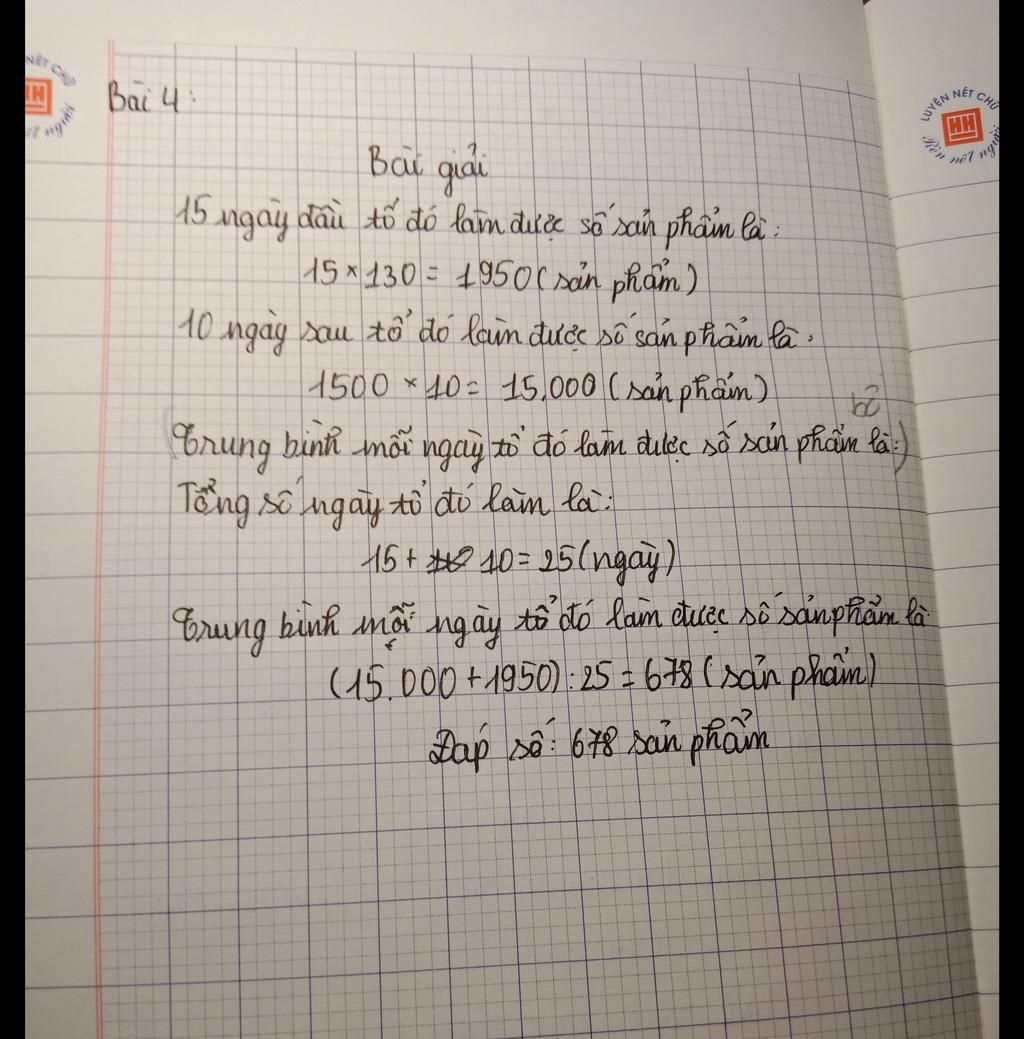 NÉT CHỮ
HH
nết người
LUYỆN NÉT CHỮ
HH
Rèn nết người
Bài 4:
Bài giải
15 ngày đầu tổ đó làm được số sản phẩm là:
15 × 130 = 1950 (sản phẩm)
10 ngày sau tổ đó làm được số sản phẩm là.
1500 × 10 = 15.000 (sản phẩm)
bỏ
(Trung bình mỗi ngày tổ đó làm được số sản phẩm là:)
Tổng số ngày tổ đó làm là:
15 + 10 = 25 (ngày)
Trung bình mỗi ngày tổ đó làm được số sản phẩm là
(15.000 + 1950) : 25 = 678 (sản phẩm)
Đáp số: 678 sản phẩm